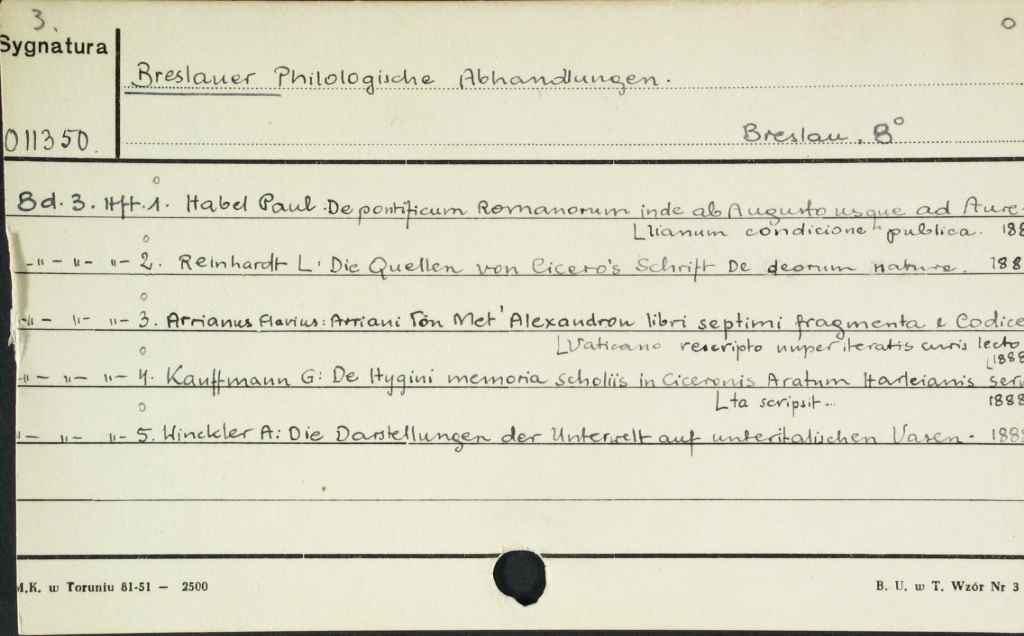 3.
Sygnatura
Breslauer Philologische Abhandlungen.
011350.
Breslau. 8°
Bd. 3. Hft. 1. Habel Paul. De pontificum Romanorum inde ab Augusto usque ad Aure-
Llianum condicione publica. 188
-"- "- "- 2. Reinhardt L. Die Quellen von Cicero's Schrift De deorum nature. 188
-"- "- "- 3. Arrianus Flavius: Arriani Tōn Met' Alexandron libri septimi fragmenta e Codice
LVaticano rescripto nuper iteratis curis lecto
L1888
-"- "- "- 4. Kauffmann G: De Hygini memoria scholiis in Ciceronis Aratum Harleianis serv
Lta scripsit... 1888
"- "- "- 5. Winckler A: Die Darstellungen der Unterwelt auf unteritalischen Vasen. 188
M.K. w Toruniu 81-51 — 2500
B. U. w T. Wzór Nr 3